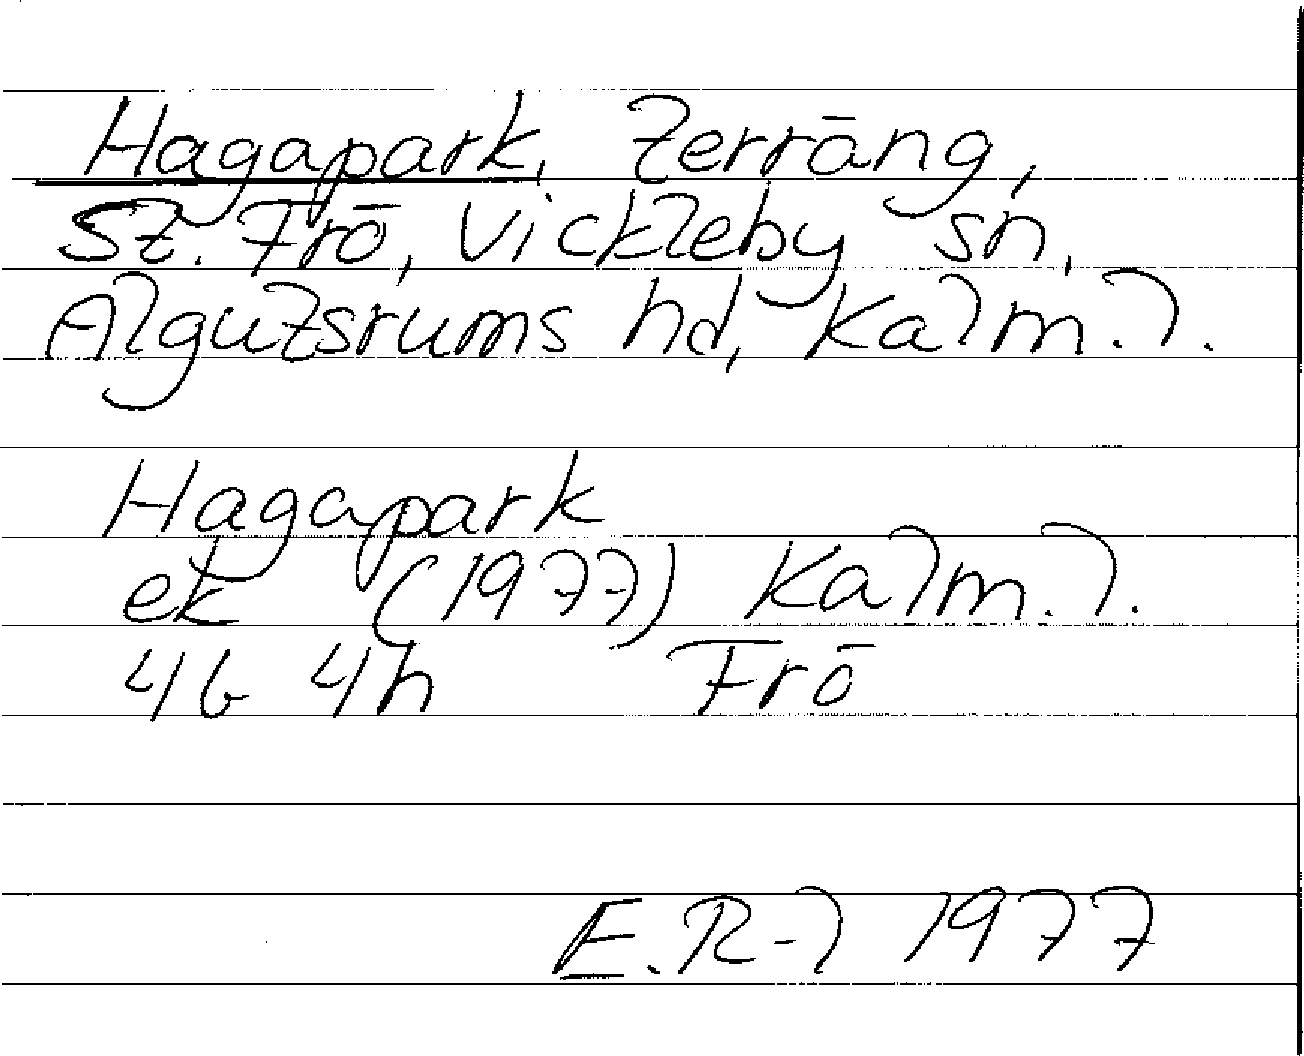 Hagapark, terräng,
St. Frö, Vickleby sn,
Algutsrums hd, Kalm. l.
Hagapark
ek (1977) Kalm. l.
4G 4h Frö
E.R-l 1977